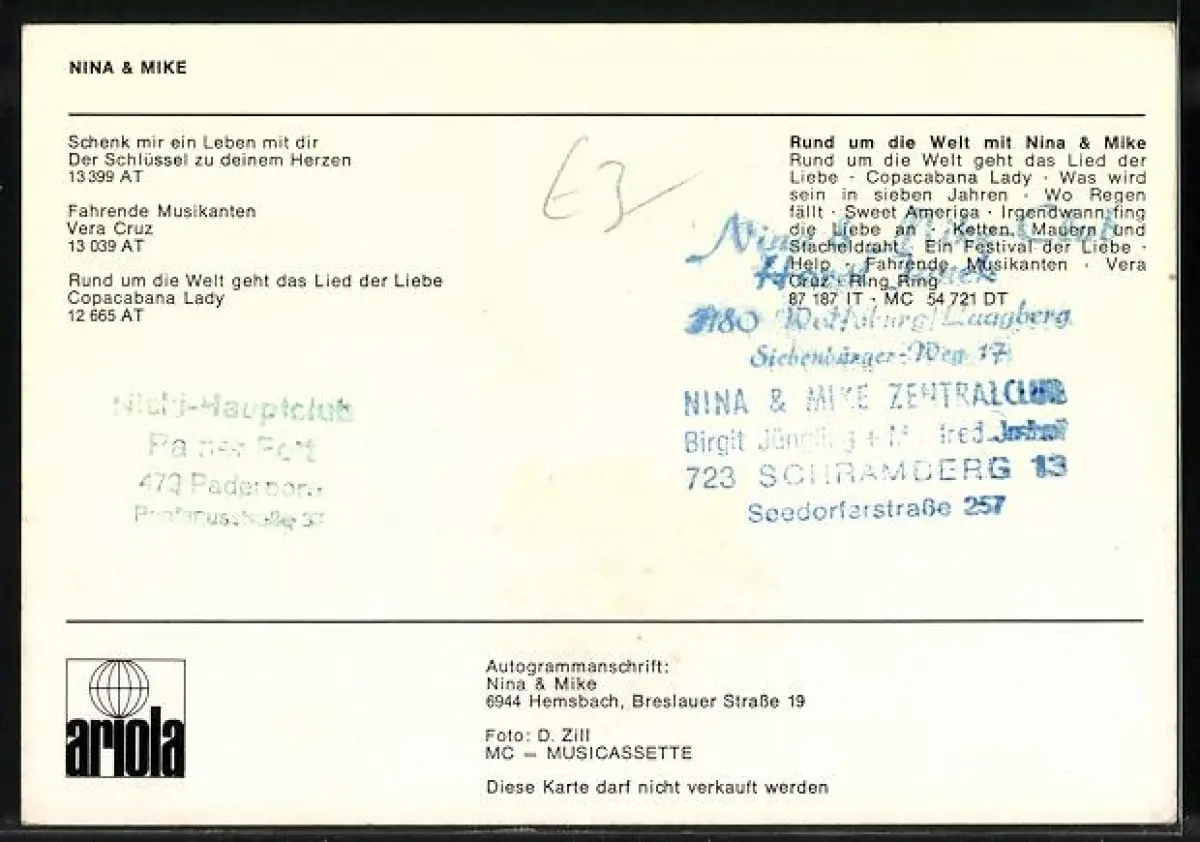 NINA & MIKE
Schenk mir ein Leben mit dir
Der Schlüssel zu deinem Herzen
13 399 AT
Fahrende Musikanten
Vera Cruz
13 039 AT
Rund um die Welt geht das Lied der Liebe
Copacabana Lady
12 665 AT
E3
Rund um die Welt mit Nina & Mike
Rund um die Welt geht das Lied der
Liebe · Copacabana Lady · Was wird
sein in sieben Jahren · Wo Regen
fällt · Sweet America · Irgendwann fing
die Liebe an · Ketten, Mauern und
Stacheldraht · Ein Festival der Liebe ·
Help · Fahrende Musikanten · Vera
Cruz · Ring Ring
87 187 IT · MC 54 721 DT
Nina Club
3180 Wolfsburg/Laagberg
Siebenbürger-Weg 17
NINA & MIKE ZENTRALCLUB
Birgit
723 SCHRAMBERG 13
Seedorferstraße 257
-Hauptclub
Paderborn
ariola
Autogrammanschrift:
Nina & Mike
6944 Hemsbach, Breslauer Straße 19
Foto: D. Zill
MC — MUSICASSETTE
Diese Karte darf nicht verkauft werden